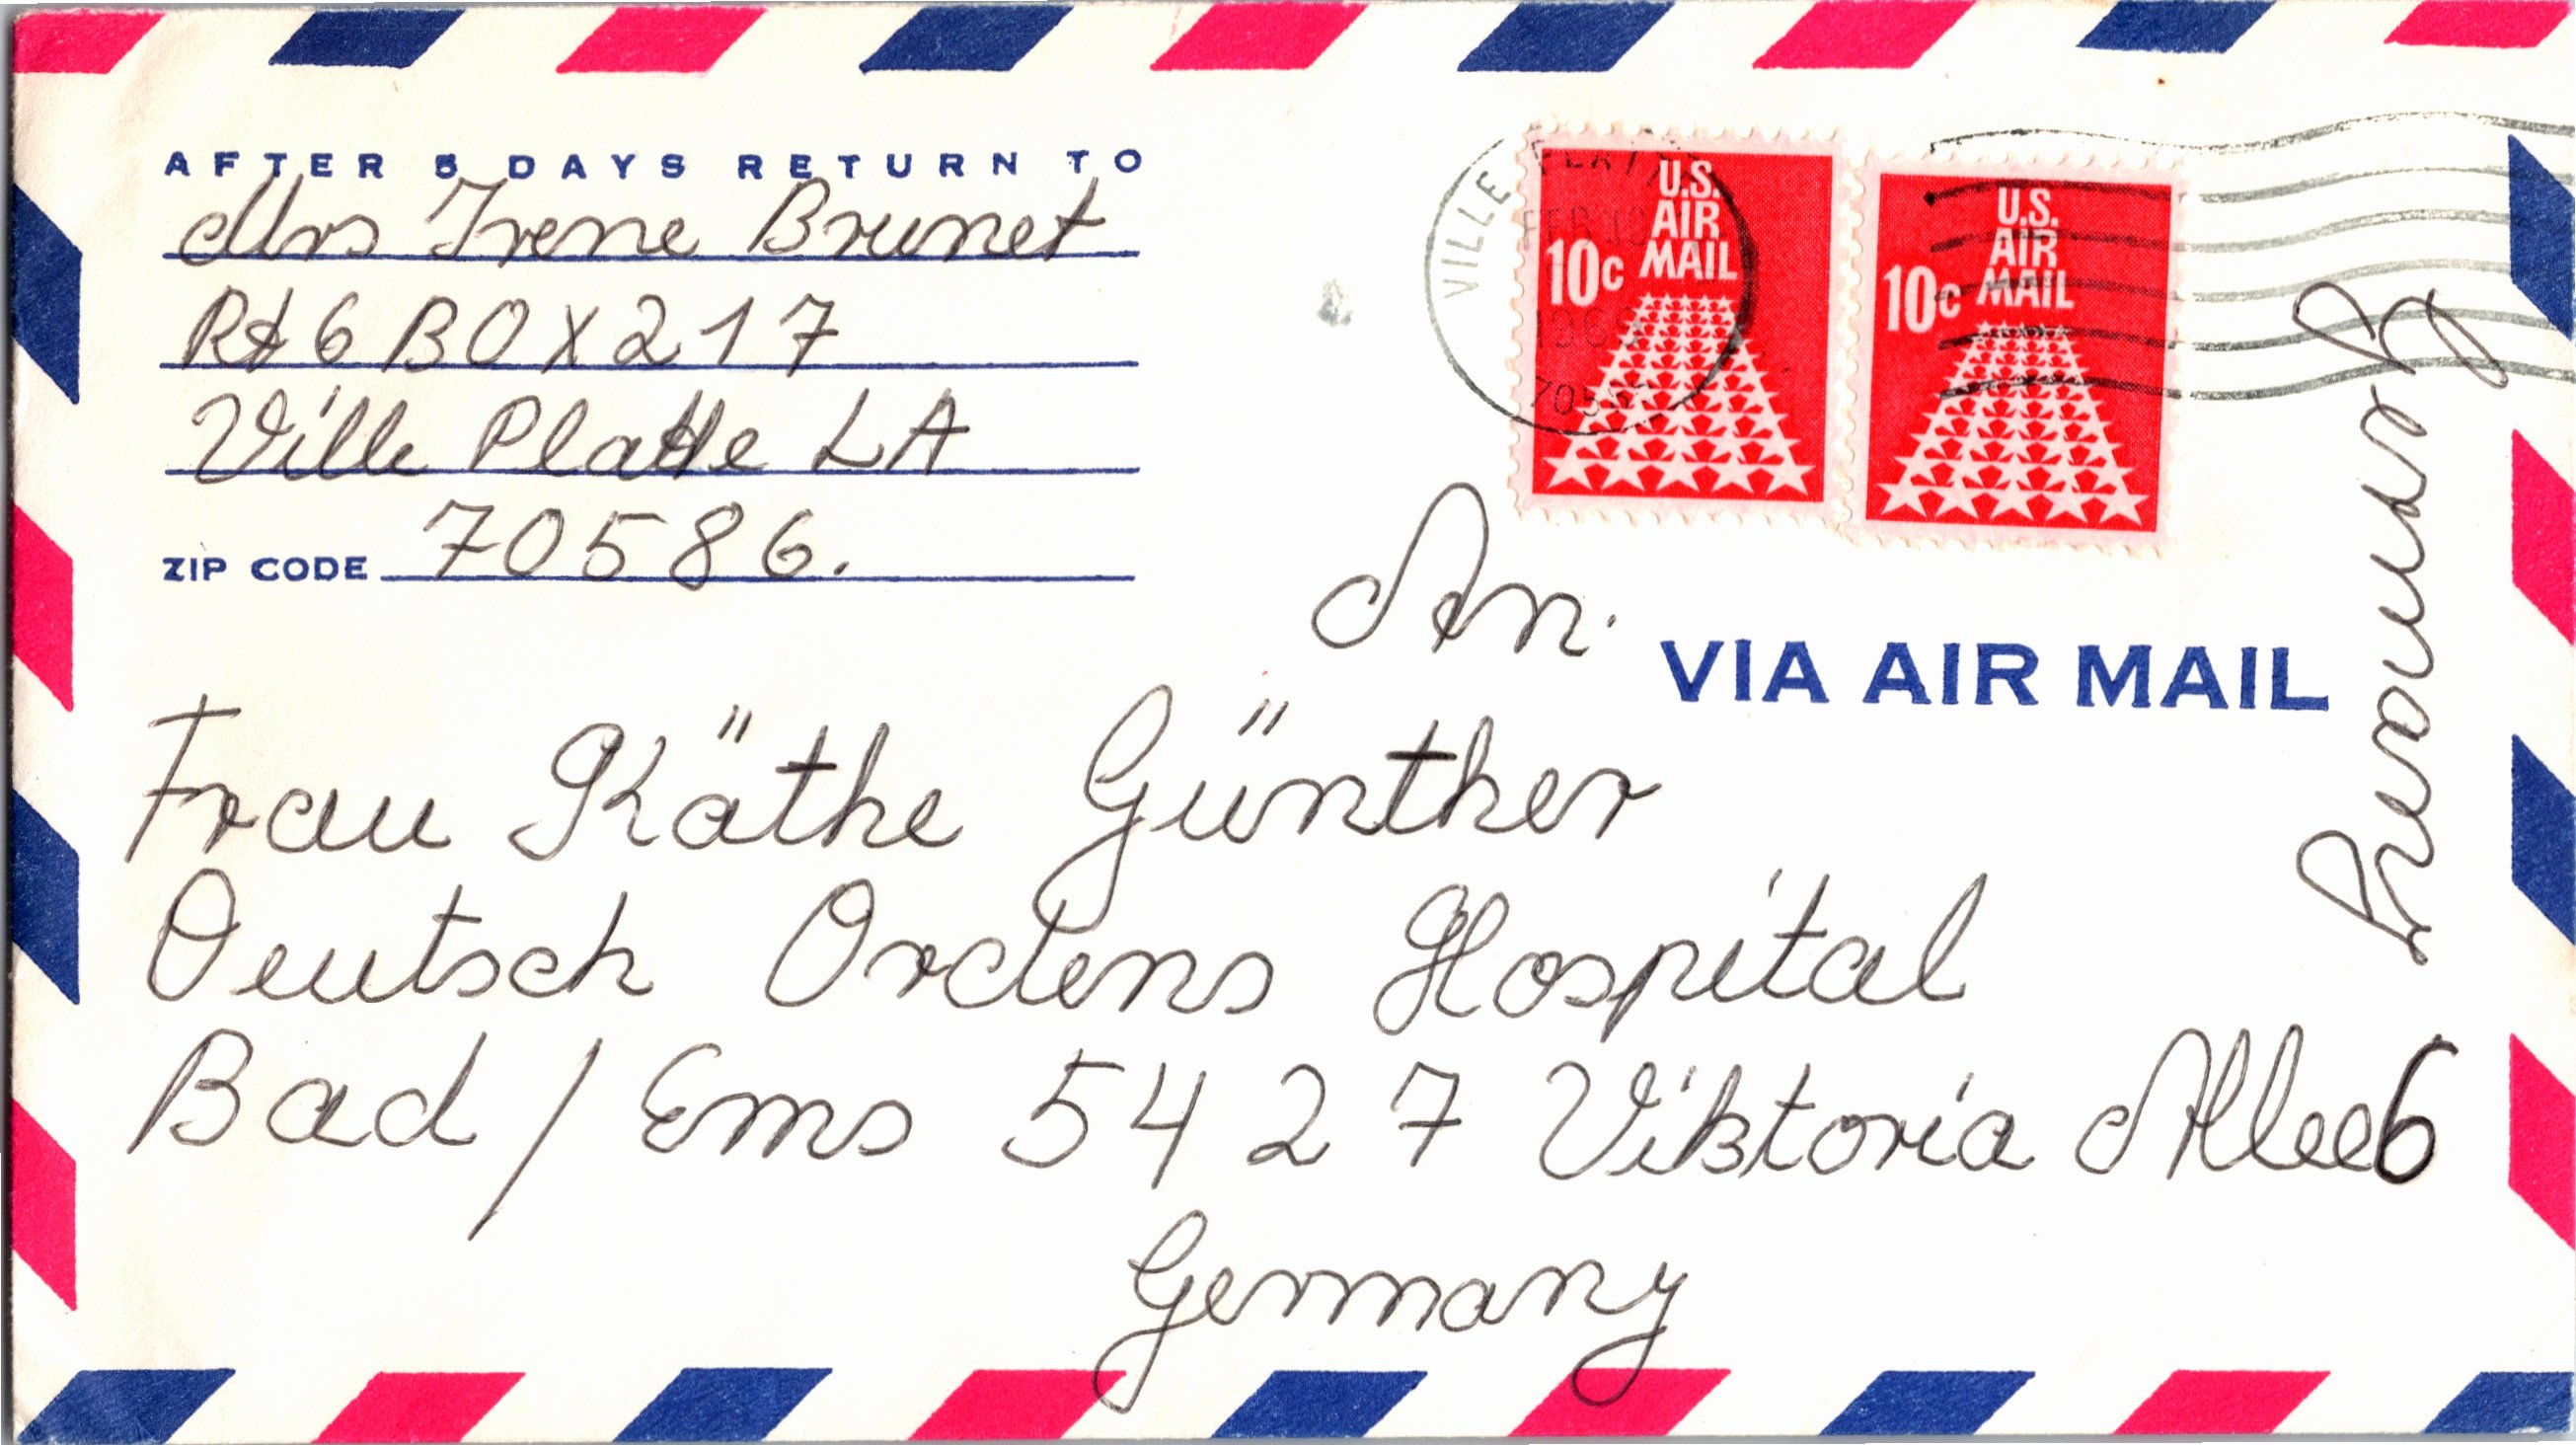 AFTER 5 DAYS RETURN TO
Mrs Irene Brunet
Rt 6 BOX 217
Ville Platte LA
ZIP CODE 70586.
VILLE PLATTE
FEB
196
705
U.S.
AIR
MAIL
10c
U.S.
AIR
MAIL
10c
An.
VIA AIR MAIL
Frau Käthe Günther
Deutsch Ordens Hospital
Bad / Ems 5427 Viktoria Allee 6
Germany
Germany